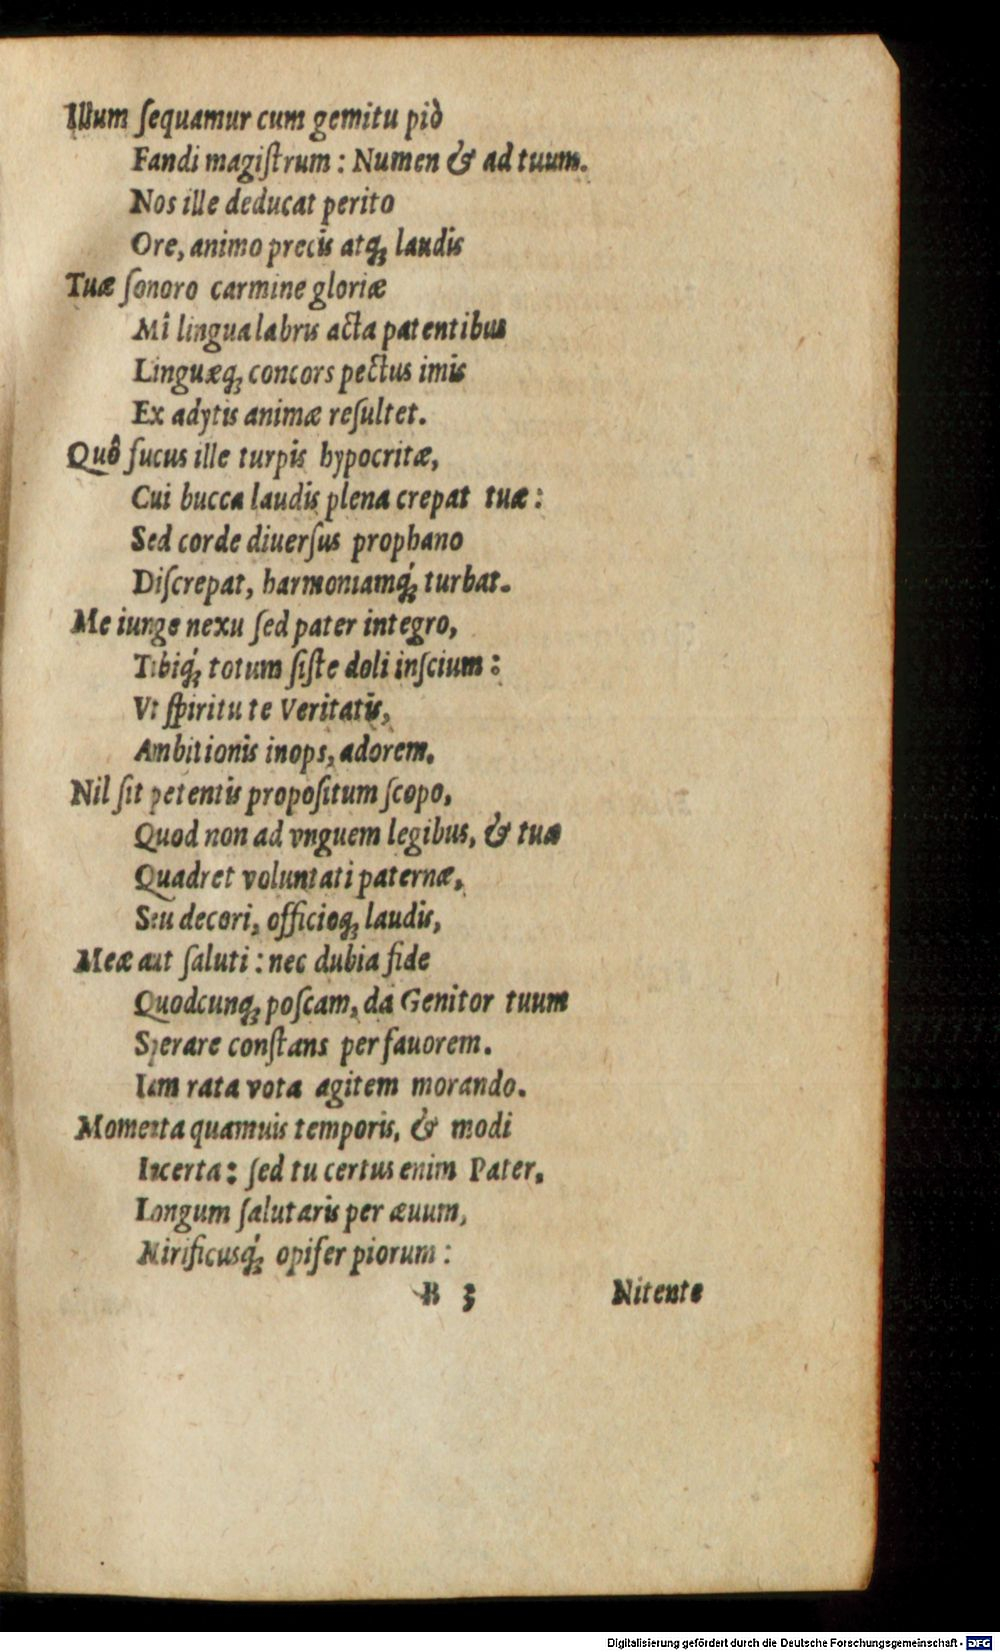 Illum ſequamur cum gemitu piò
Fandi magiſtrum: Numen & ad tuum.
Nos ille deducat perito
Ore, animo precis atq́; laudis
Tuæ ſonoro carmine gloriæ
Mî lingua labris acta patentibus
Linguæq́; concors pectus imis
Ex adytis animæ reſultet.
Quô fucus ille turpis hypocritæ,
Cui bucca laudis plena crepat tuæ:
Sed corde diuerſus prophano
Diſcrepat, harmoniamq́; turbat.
Me iunge nexu ſed pater integro,
Tibiq́; totum ſiſte doli inſcium:
Vt ſpiritu te Veritatis,
Ambitionis inops, adorem.
Nil ſit petentis propoſitum ſcopo,
Quod non ad vnguem legibus, & tuæ
Quadret voluntati paternæ,
Seu decori, officioq́; laudis,
Meæ aut ſaluti: nec dubia fide
Quodcunq́; poſcam, da Genitor tuum
Sperare conſtans per fauorem.
Iam rata vota agitem morando.
Momenta quamuis temporis, & modi
Incerta: ſed tu certus enim Pater,
Longum ſalutaris per æuum,
Mirificusq́; opifer piorum:
B 3 Nitente
Digitalisierung gefördert durch die Deutsche Forschungsgemeinschaft - DFG